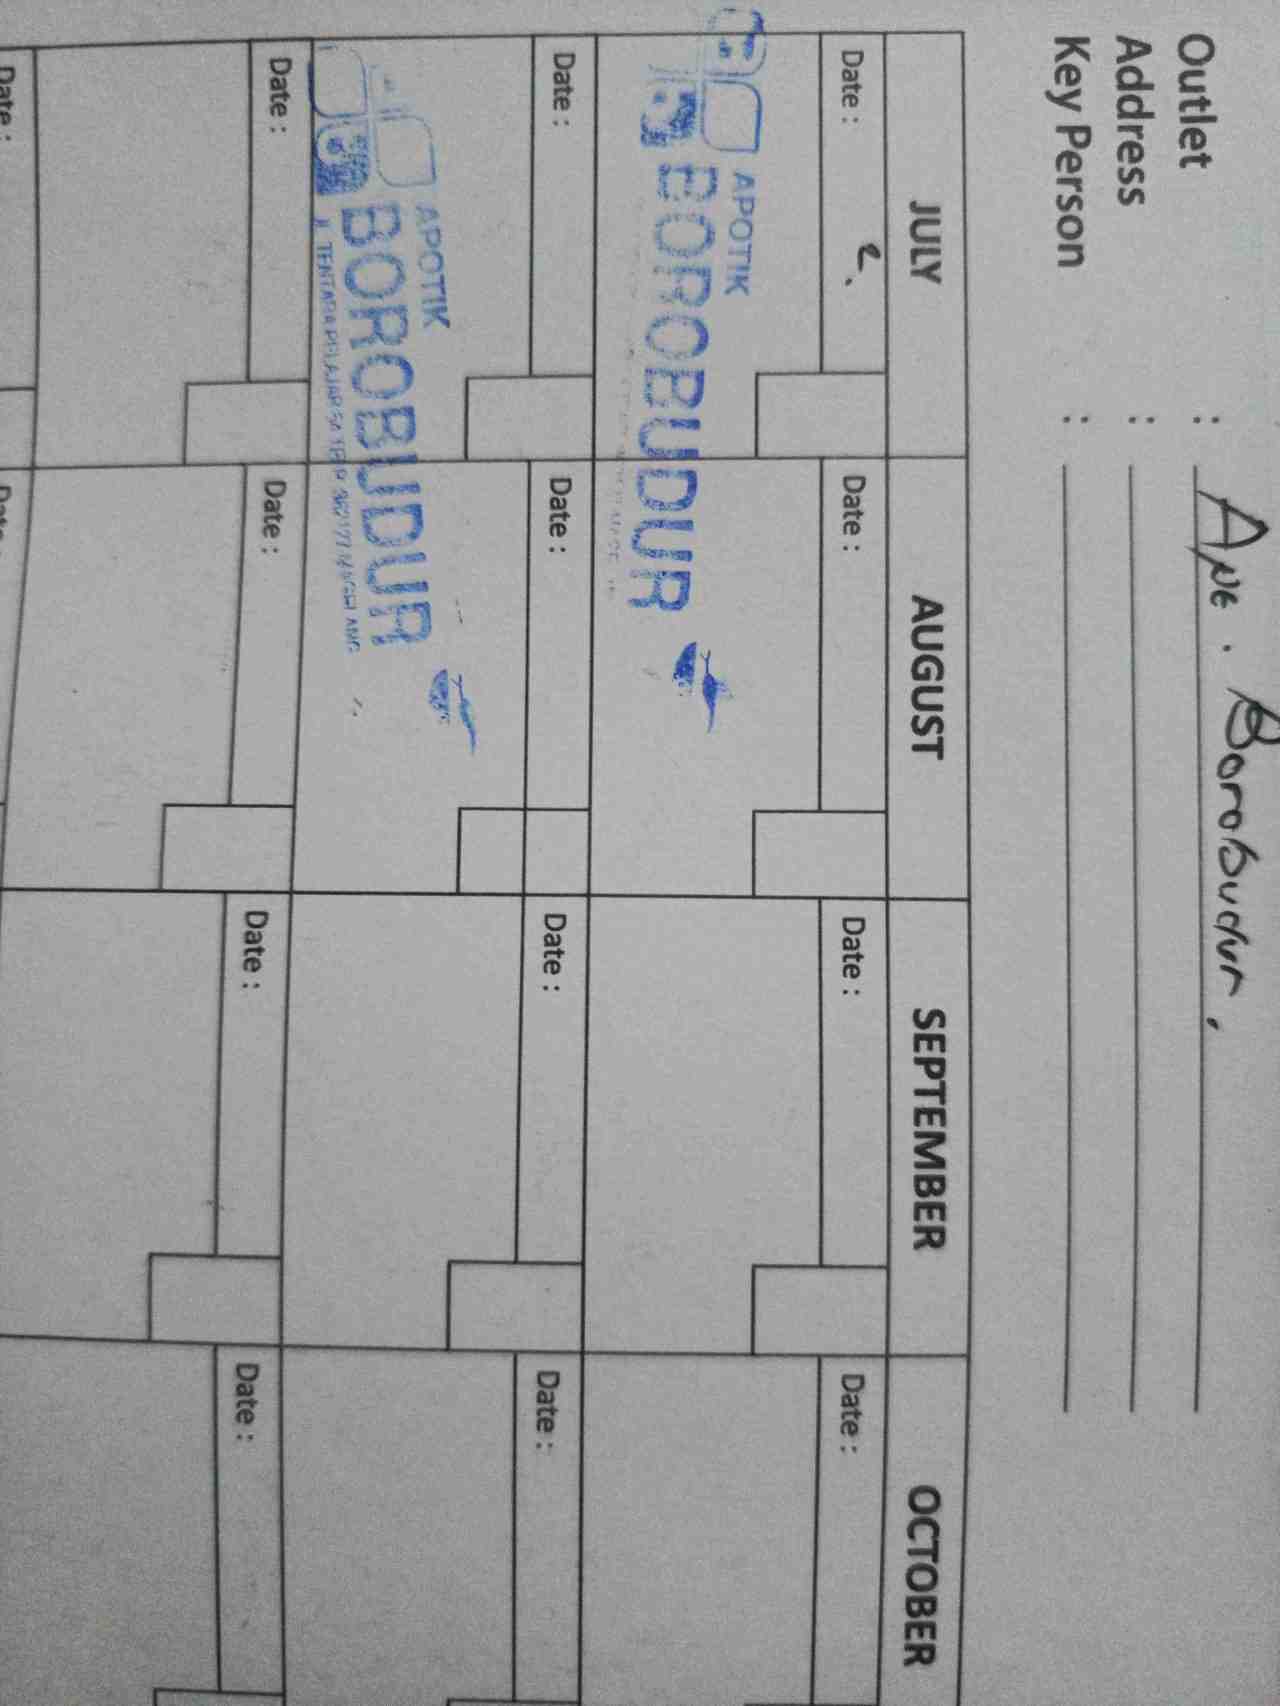 Outlet : Ape. Borobudur.
Address :
Key Person :
JULY AUGUST SEPTEMBER OCTOBER
Date : 2. Date : Date : Date :
APOTIK
BOROBUDUR
Date : Date : Date : Date :
APOTIK
BOROBUDUR
TENTARA PELAJAR MAGELANG
Date : Date : Date : Date :
Date : Date :